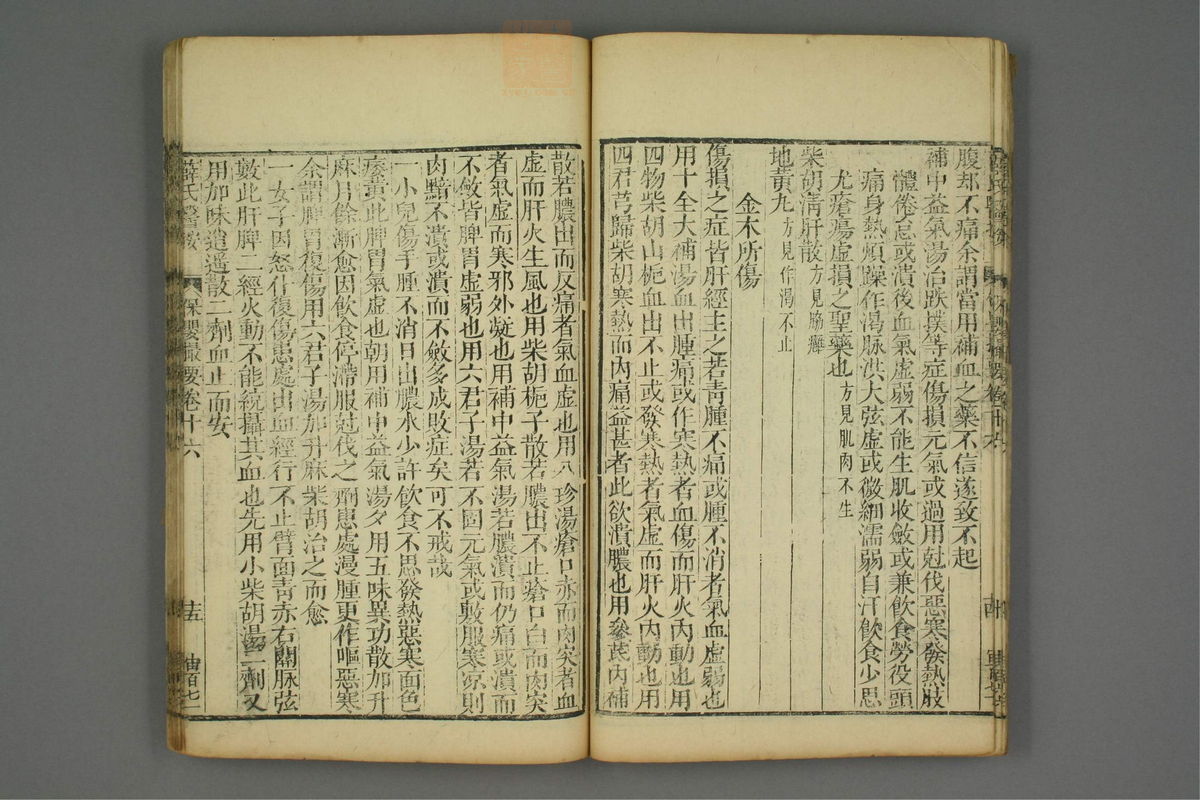 腹却不痛余謂當用補血之藥不信遂致不起
補中益氣湯治跌撲等症傷損元氣或過用尅伐惡寒發熱肢
體倦怠或潰後血氣虛弱不能生肌收斂或兼飲食勞役頭
痛身熱煩躁作渴脉洪大弦虛或微細濡弱自汗飲食少思
尤瘡瘍虛損之聖藥也方見肌肉不生
柴胡清肝散方見胁癰
地黃丸方見作渴不止
金木所傷
傷損之症皆肝經主之若青腫不痛或腫不消者氣血虛弱也
用十全大補湯血出腫痛或作寒熱者血傷而肝火內動也用
四物柴胡山梔血出不止或發寒熱者氣虛而肝火內動也用
四君芎歸柴胡寒熱而內痛益甚者此欲潰膿也用參芪內補
散若膿出而反痛者氣血虛也用八珍湯瘡口赤而肉突者血
虛而肝火生風也用柴胡梔子散若膿出不止瘡口白而肉突
者氣虛而寒邪外凝也用補中益氣湯若膿潰而仍痛或潰而
不斂皆脾胃虛弱也用六君子湯若不固元氣或數服寒凉則
肉黯不潰或潰而不斂多成敗症矣可不戒哉
一小兒傷手腫不消日出膿水少許飲食不思發熱惡寒面色
痿黃此脾胃氣虛也朝用補中益氣湯夕用五味異功散加升
麻月餘漸愈因飲食停滯服尅伐之劑患處漫腫更作嘔惡寒
余謂脾胃復傷用六君子湯加升麻柴胡治之而愈
一女子因怒什復傷患處出血經行不止臂面青赤右關脉弦
數此肝脾二經火動不能統攝其血也先用小柴胡湯二劑又
用加味逍遥散二劑血止而安
薛氏醫按
保嬰撮要卷十六